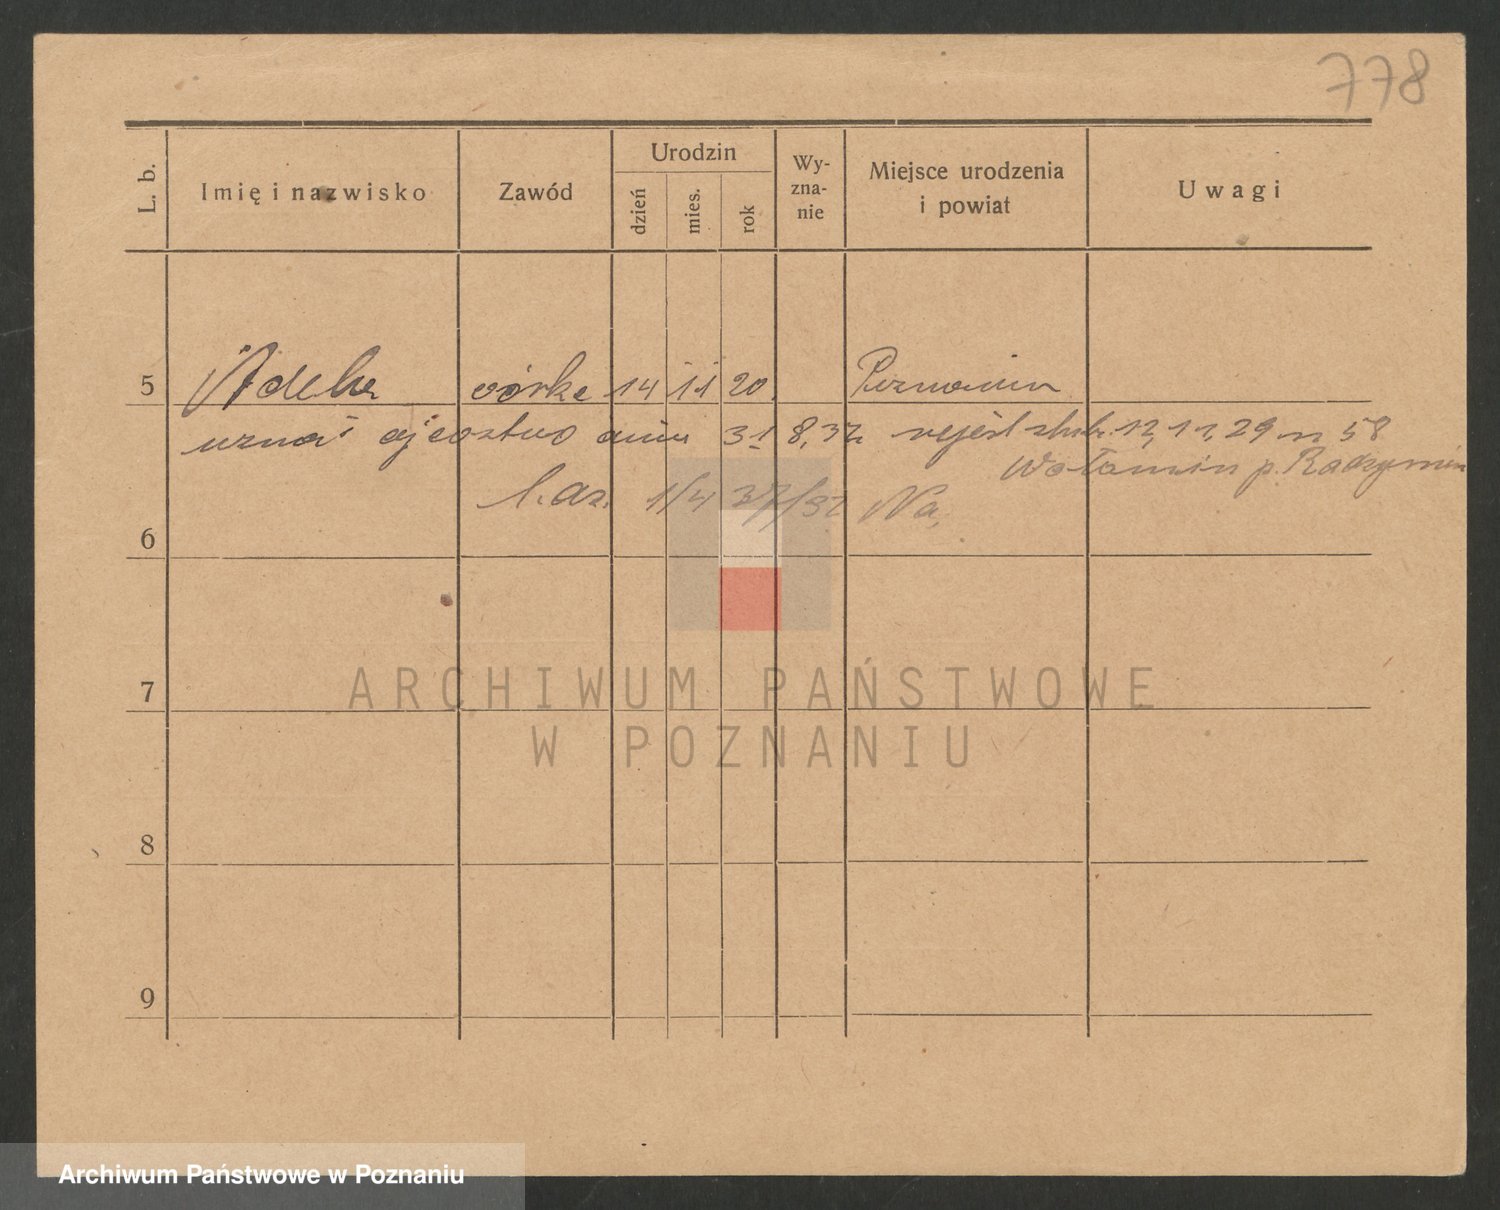 778
L. b. Imię i nazwisko Zawód Urodzin dzień mies. rok Wy-zna-nie Miejsce urodzenia i powiat Uwagi
5 Adela córka 14 11 20. Poznaniu
uznał ojcostwo dnia 31 8.32 rejest ślub. 12, 11, 29 n 58
Wołomin p. Radzymin
1/4 37/32 Na.
6
ARCHIWUM PAŃSTWOWE
7
W POZNANIU
8
9
Archiwum Państwowe w Poznaniu